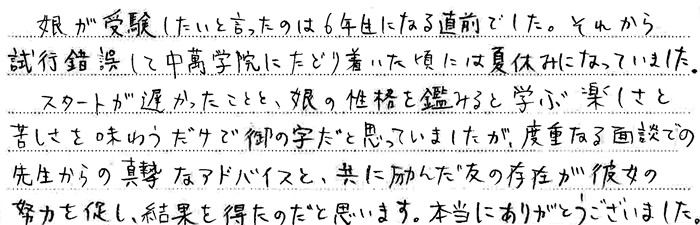 娘が受験したいと言ったのは6年生になる直前でした。それから
試行錯誤して中萬学院にたどり着いた頃には夏休みになっていました。
スタートが遅かったことと、娘の性格を鑑みると学ぶ楽しさと
苦しさを味わうだけで御の字だと思っていましたが、度重なる面談での
先生からの真摯なアドバイスと、共に励んだ友の存在が彼女の
努力を促し、結果を得たのだと思います。本当にありがとうございました。